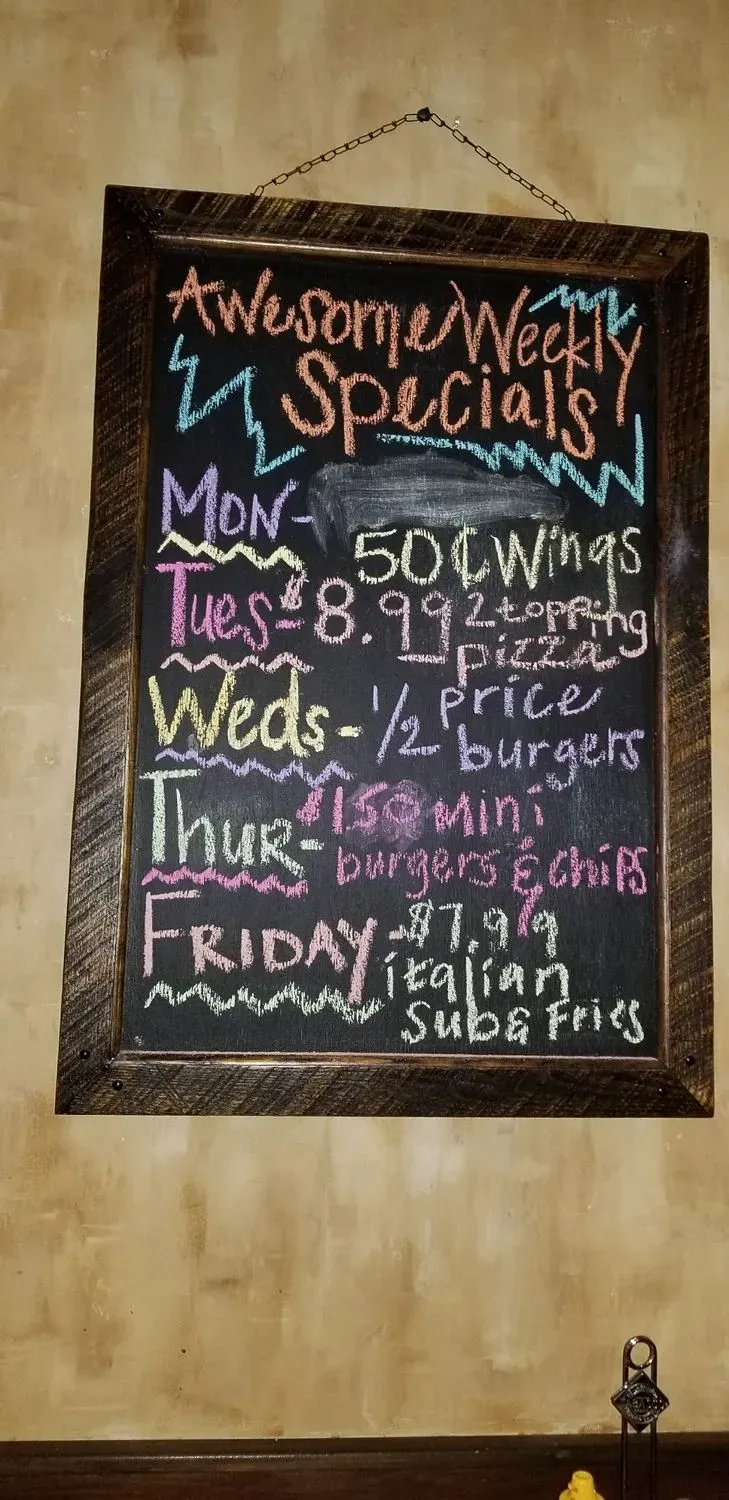 Awesome Weekly
Specials
MON- 50¢ Wings
Tues- $8.99 2 topping
pizza
Weds- 1/2 price
burgers
Thur- $150 mini
burgers & chips
FRIDAY- $7.99
italian
Sub & Fries